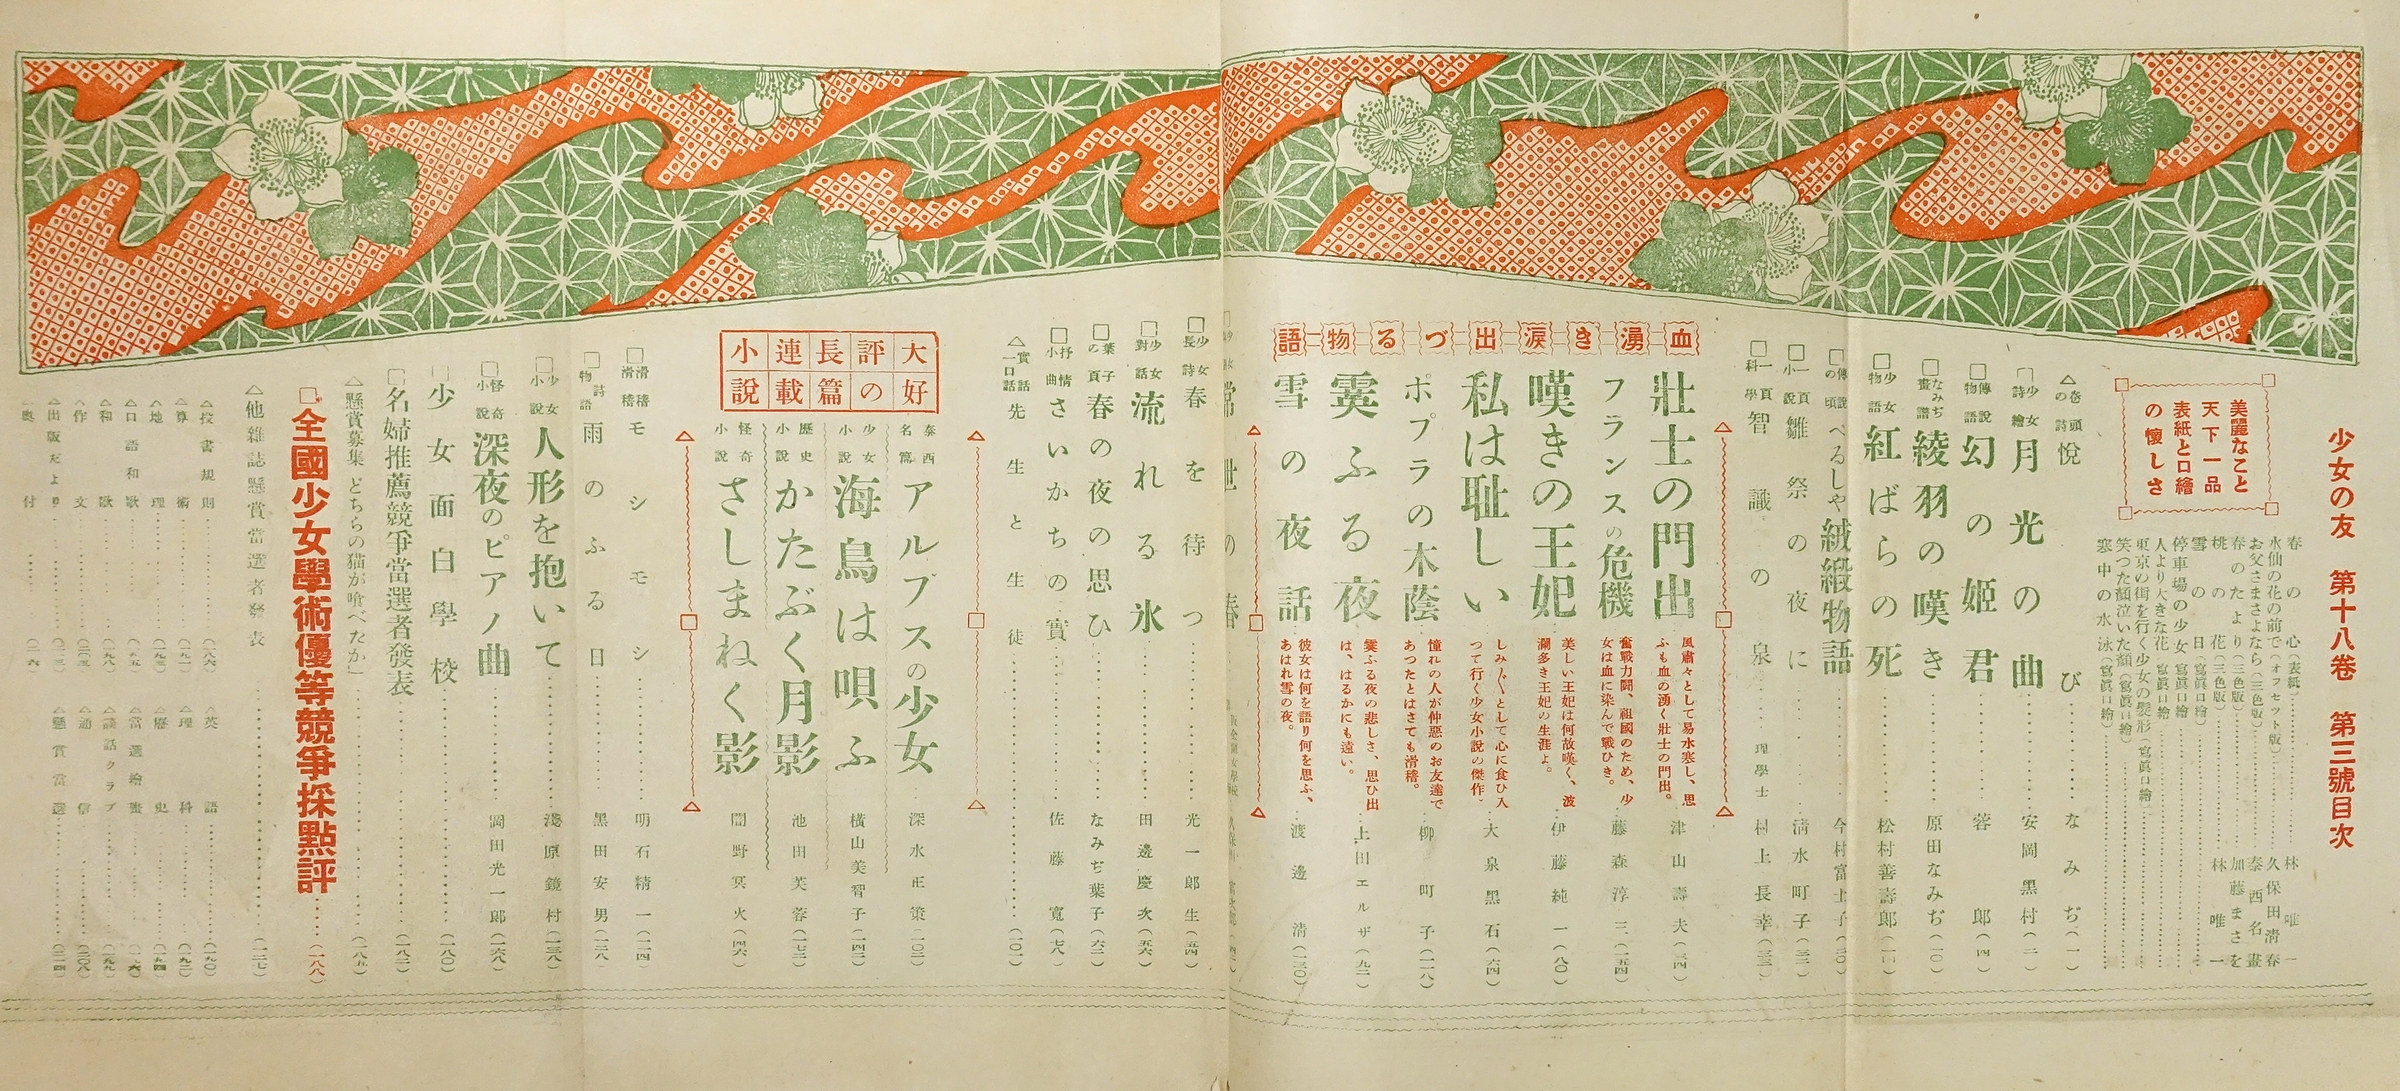 少女の友 第十八卷 第三號目次
美麗なこと
天下一品
表紙と口繪
の懷しさ
春の心(表紙)……林唯一
水仙の花の前で(オフセット版)……久保田淸春
お父さまさよなら(三色版)……泰西名畫
春のたより(三色版)……加藤まさを
桃の花(三色版)……林唯一
雪の日(寫眞口繪)
停車場の少女(寫眞口繪)
人より大きな花(寫眞口繪)
東京の街を行く少女の髮形(寫眞口繪)
笑つた顏泣いた顏(寫眞口繪)
寒中の水泳(寫眞口繪)
△卷頭の詩 悅び……なみぢ(一)
□少女詩繪 月光の曲……安岡黑村(二)
□傳說物語 幻の姬君……蓉郎(四)
□なみぢ畫譜 綾羽の嘆き……原田なみぢ(一〇)
□少女物語 紅ばらの死……松村善壽郎
□傳說の頃 べるしや絨緞物語……今村富士子(二〇)
□一頁小說 雛祭の夜に……淸水町子(三二)
□一頁科學 智識の泉……理學士 村上長幸(三三)
血湧き淚出づる物語
壯士の門出
風肅々として易水寒し、思ふも血の湧く壯士の門出。
津山壽夫(三四)
フランスの危機
奮戰力鬪、祖國のため、少女は血に染んで戰ひき。
藤森淳三(一五四)
嘆きの王妃
美しい王妃は何故嘆く、波瀾多き王妃の生涯よ。
伊藤純一(八〇)
私は耻しい
しみ〴〵として心に食ひ入つて行く少女小說の傑作。
大泉黑石(六四)
ポプラの木蔭
憧れの人が仲惡のお友達であつたとはさても滑稽。
柳町子(一一八)
霙ふる夜
霙ふる夜の悲しさ、思ひ出は、はるかにも遠い。
上田エルザ(九二)
雪の夜話
彼女は何を語り何を思ふ、あはれ雪の夜。
渡邊淸(一三〇)
常世の春
□少女長詩 春を待つ……光一郎生(五四)
□少女對話 流れる氷……田邊慶次(五六)
□葉子の頁 春の夜の思ひ……なみぢ葉子(六二)
□抒情小曲 さいかちの實……佐藤寬(七八)
△實話一口話 先生と生徒……(一〇一)
大好評の長篇連載小說
泰西名篇 アルプスの少女……深水正策(一〇二)
少女小說 海鳥は唄ふ……橫山美智子(一四二)
歷史小說 かたぶく月影……池田芙蓉(一七二)
怪奇小說 さしまねく影……闇野冥火(四六)
□滑稽滑稽 モシモシモシ……明石精一(一一四)
□詩物語 雨のふる日……黑田安男(一二八)
□少女小說 人形を抱いて……淺原鏡村(一三八)
□怪奇小說 深夜のピアノ曲……岡田光一郎(一六八)
□少女面白學校……(一八〇)
□名婦推薦競爭當選者發表……(一八二)
△懸賞募集 どちらの猫が喰べたか……(一八五)
□全國少女學術優等競爭採點評……(一八八)
△他雜誌懸賞當選者發表……(二二七)
△投書規則……(一八六)
△英語……(一九〇)
△算術……(一九一)
△理科……(一九二)
△地理……(一九三)
△歷史……(一九四)
△口語和歌
△當選繪畫
△和歌……(一九八)
△談話クラブ……(一九九)
△作文
△通信……(二〇八)
△出版だより
△懸賞當選
△奧付